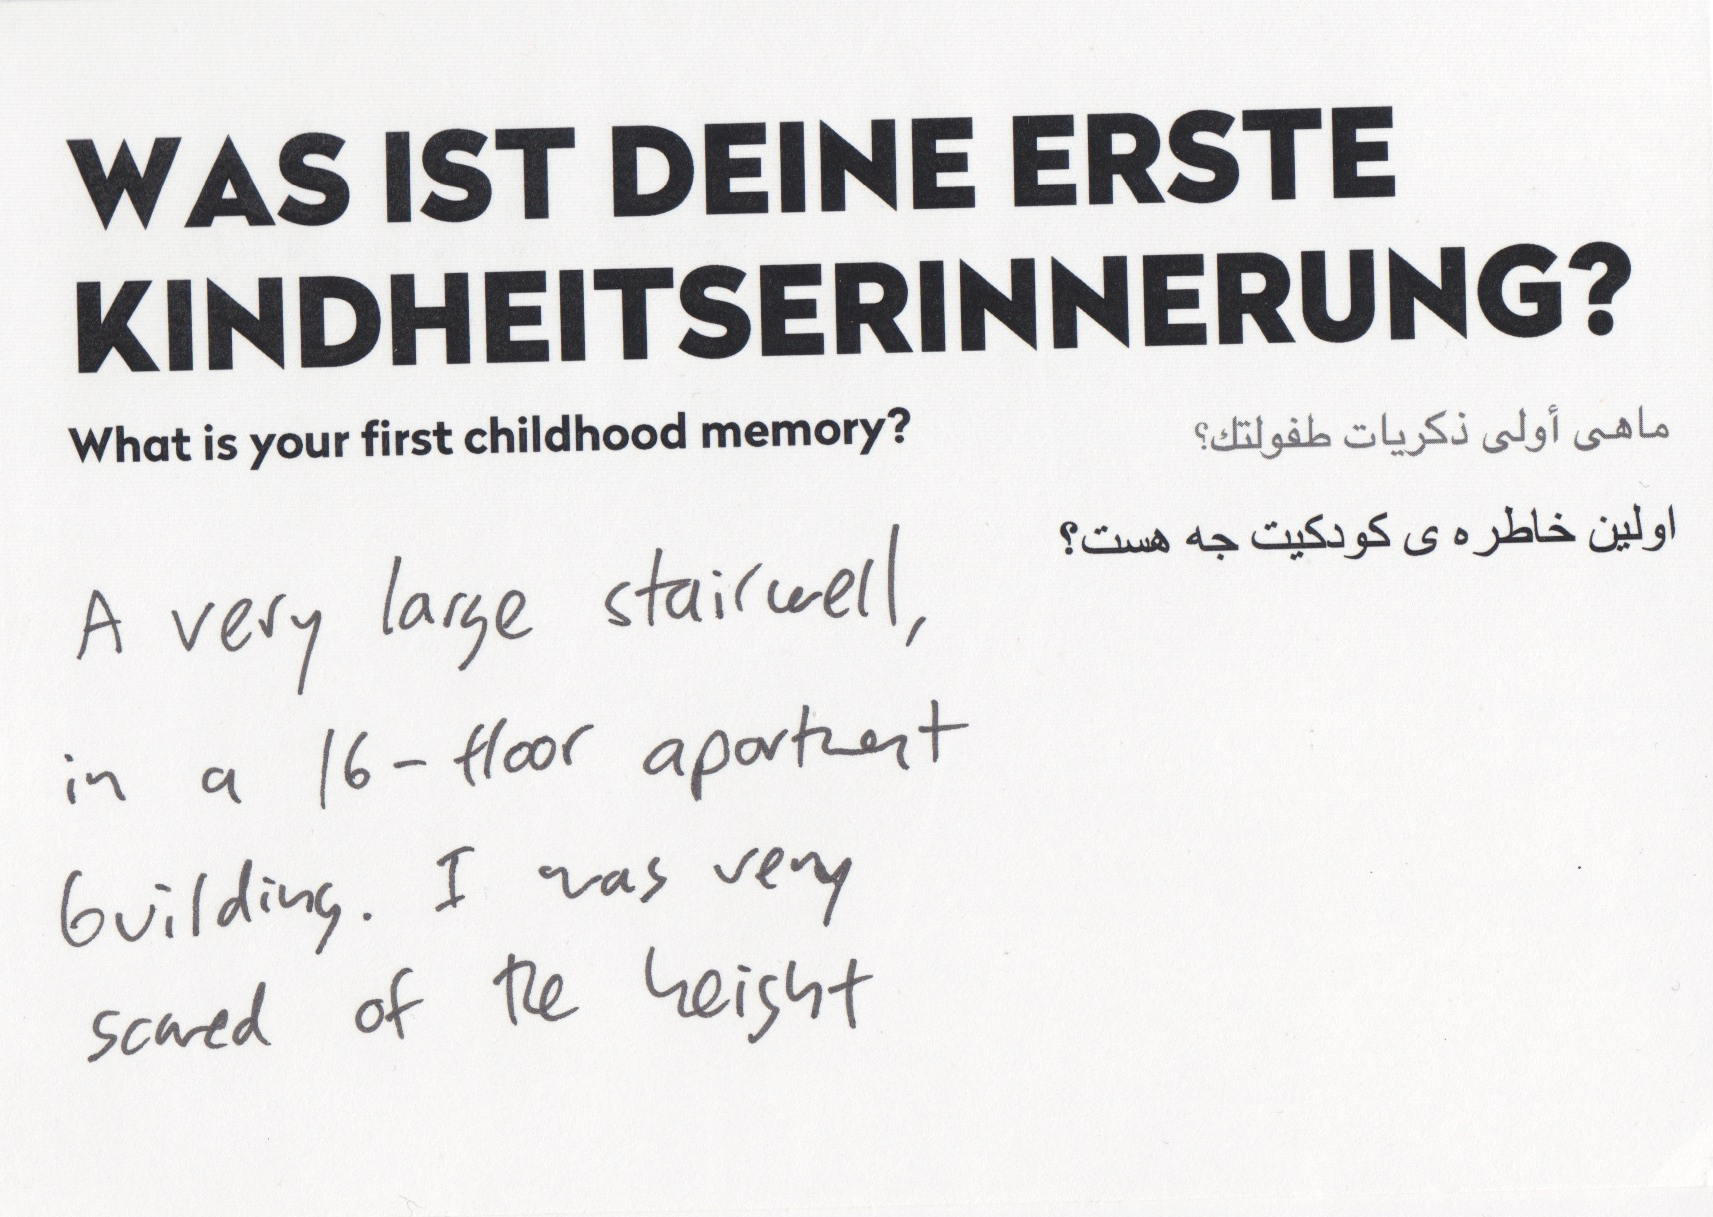 WAS IST DEINE ERSTE
KINDHEITSERINNERUNG?
What is your first childhood memory?
ماهى أولى ذكريات طفولتك؟
اولین خاطره ی کودکیت جه هست؟
A very large stairwell,
in a 16-floor apartment
building. I was very
scared of the height